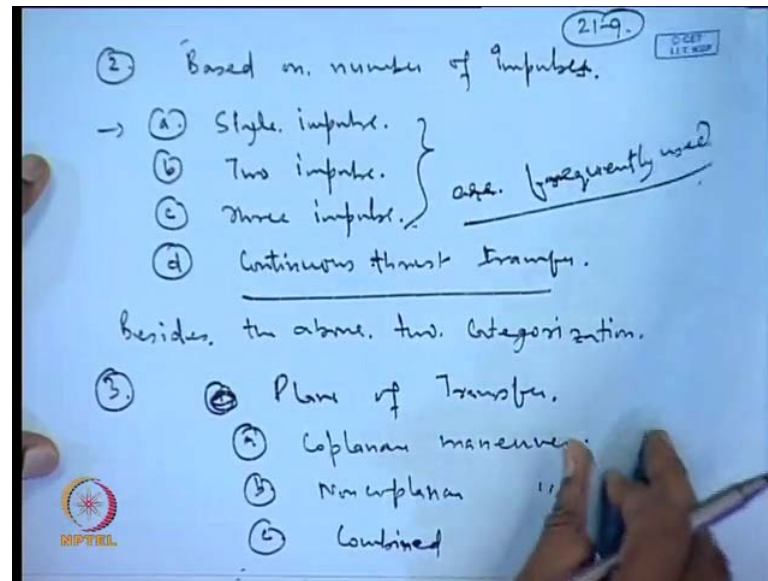 21-9.
© CET
I.I.T. KGP
② Based on. number of Impulses.
→ ⓐ. Single. impulse.
ⓑ Two impulse.
ⓒ Three impulse.
are. frequently used
ⓓ Continuous thrust transfer.
Besides, the above. two. Categorization.
③. Plane of Transfer.
ⓐ Coplanar maneuver.
ⓑ Noncoplanar "
ⓒ Combined
NPTEL